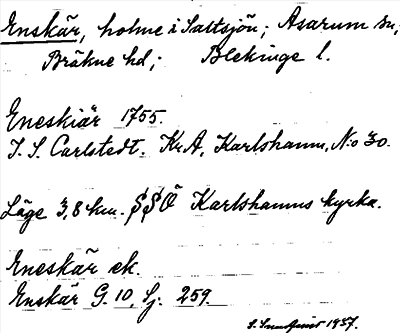 Enskär, holme i Saltsjön; Asarum sn;
Bräkne hd; Blekinge l.
Eneskiär 1755.
J. S. Carlstedt. Kr.A, Karlshamn, No 30.
Läge 3,8 km. SSÖ Karlshamns kyrka.
Eneskär ek.
Enskär G. 10, Sj. 259
S. 1937.